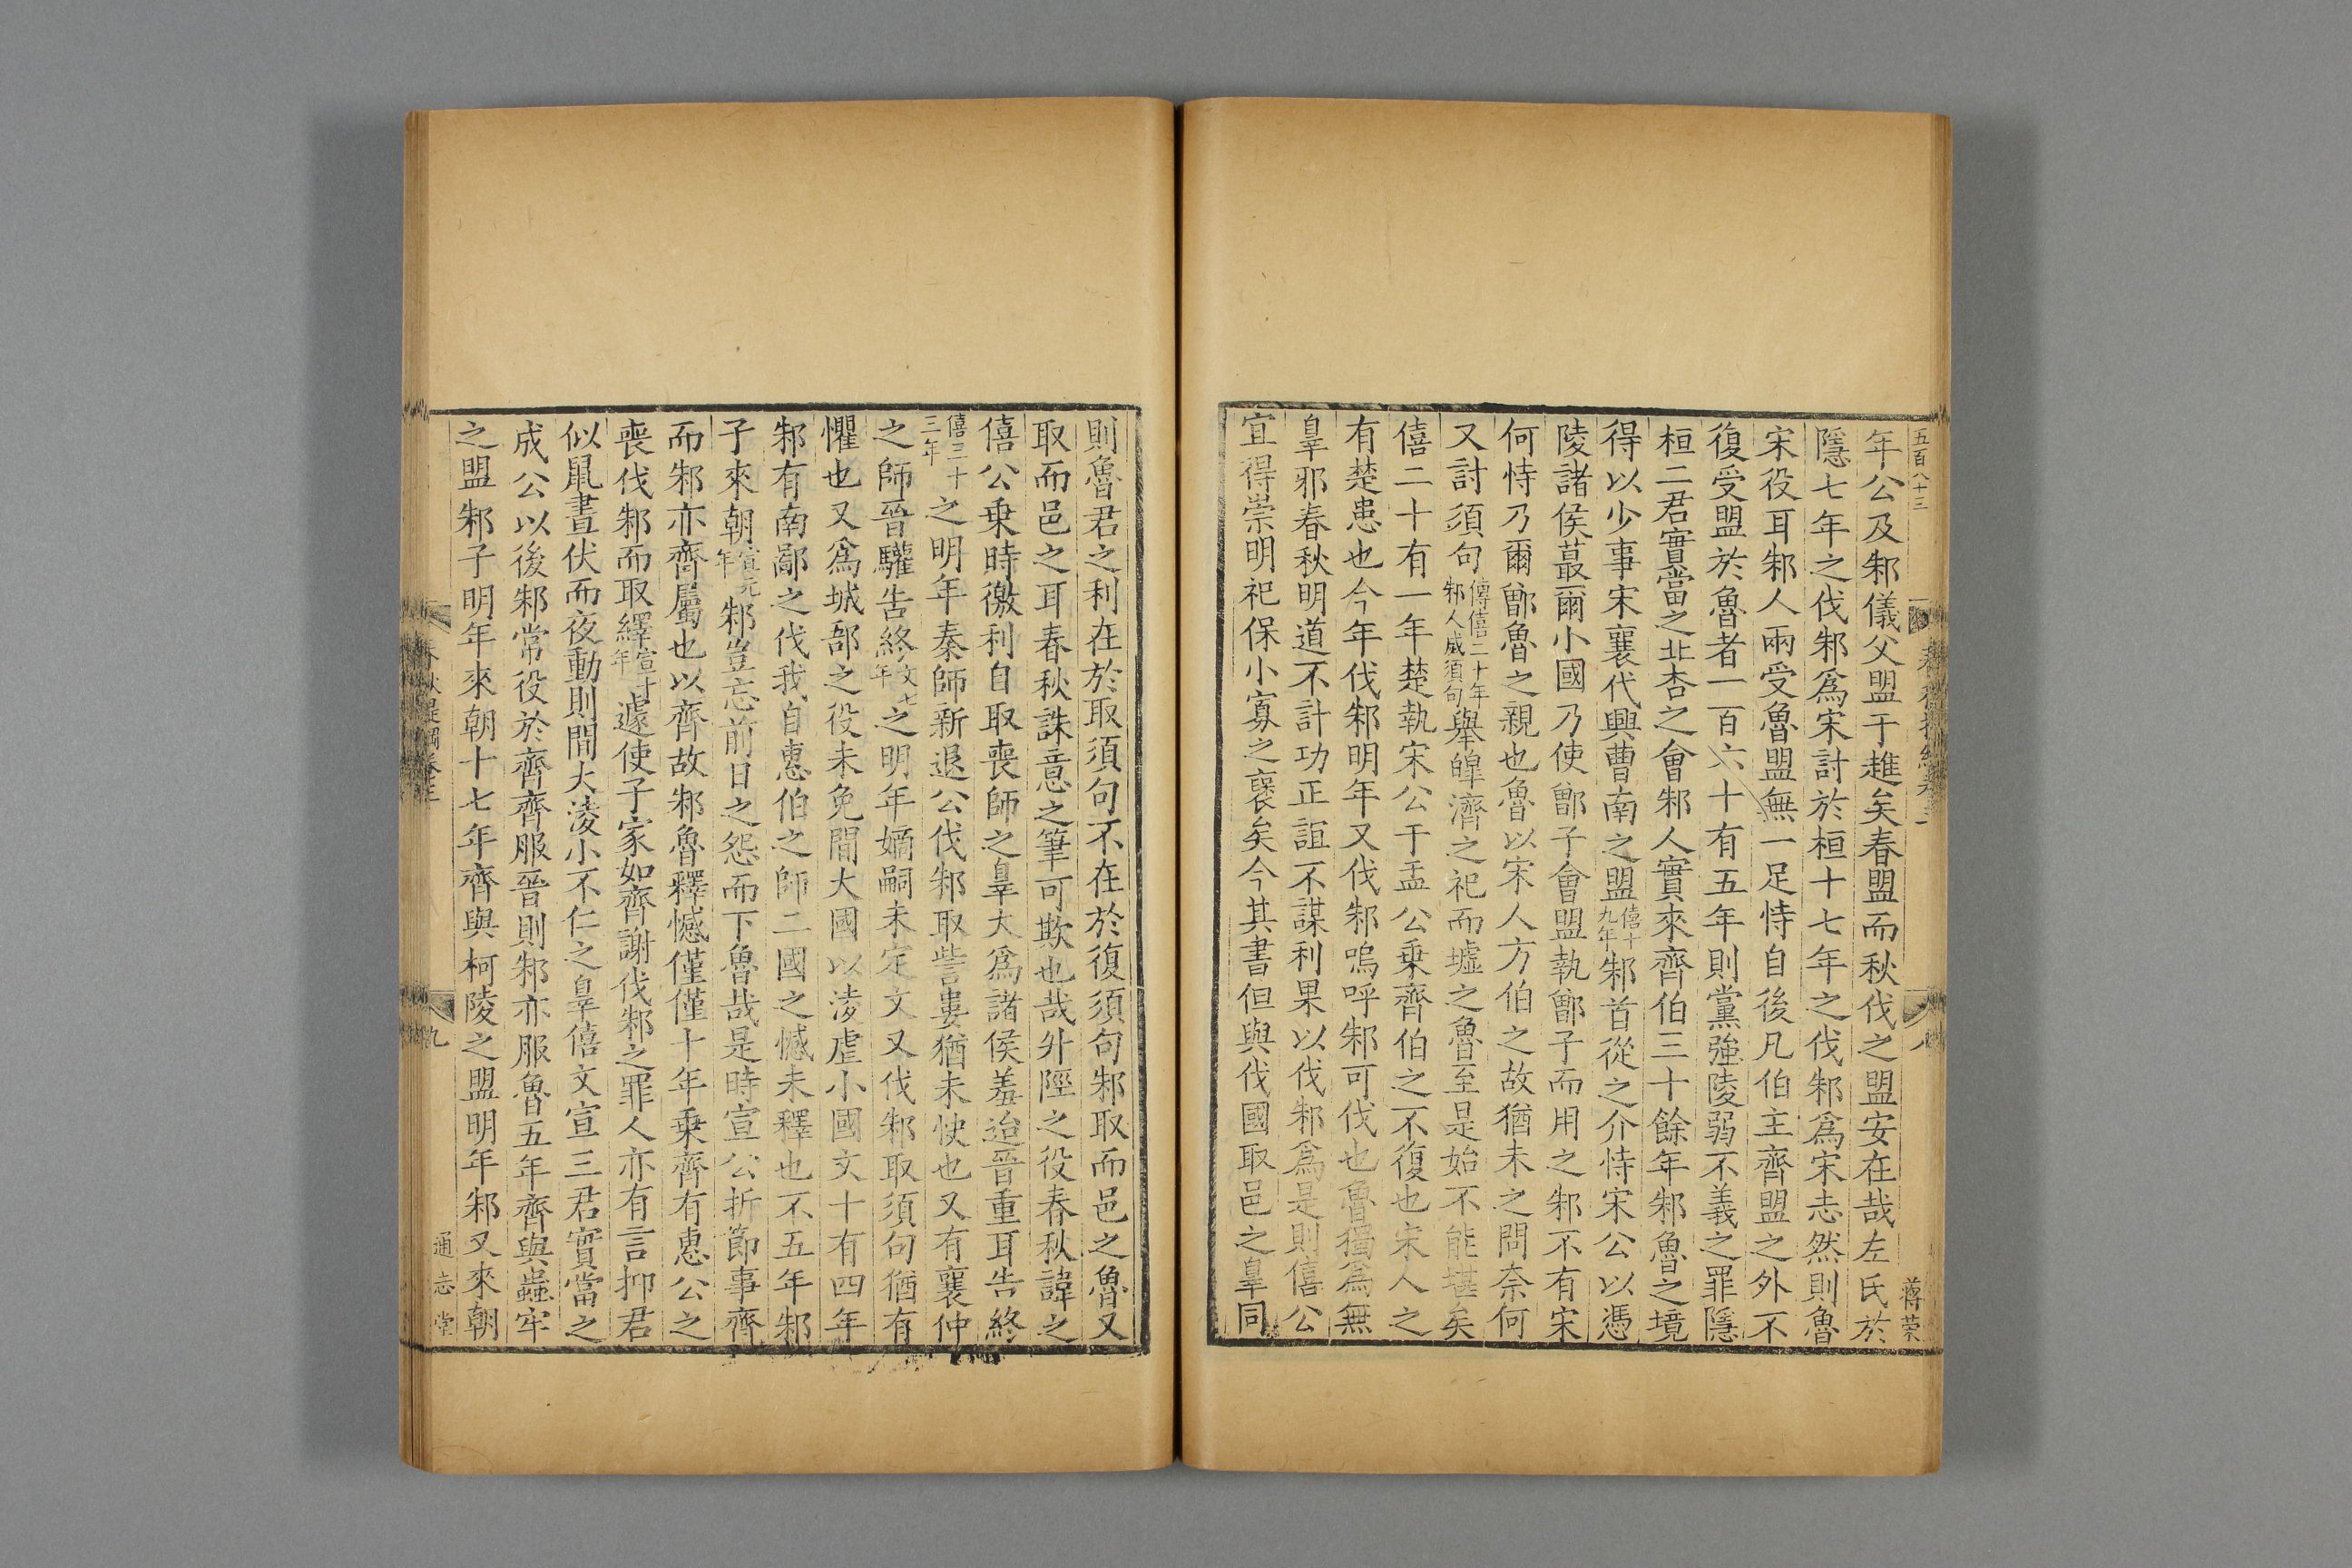 五百八十三
蔣荣
年公及邾儀父盟于趡矣春盟而秋伐之盟安在哉左氏於
隱七年之伐邾爲宋討於桓十七年之伐邾爲宋志然則魯
宋役耳邾人兩受魯盟無一足恃自後凡伯主齊盟之外不
復受盟於魯者一百六十有五年則黨強陵弱不義之罪隱
桓二君實當之北杏之會邾人實來齊伯三十餘年邾魯之境
得以少事宋襄代興曹南之盟僖十九年邾首從之介恃宋公以憑
陵諸侯蕞爾小國乃使鄫子會盟執鄫子而用之邾不有宋
何恃乃爾鄫魯之親也魯以宋人方伯之故猶未之問奈何
又討須句傳僖二十年邾人威須句舉皥濟之祀而墟之魯至是始不能堪矣
僖二十有一年楚執宋公于盂公乗齊伯之不復也宋人之
有楚患也今年伐邾明年又伐邾嗚呼邾可伐也魯獨爲無
辠邪春秋明道不計功正誼不謀利果以伐邾爲是則僖公
宜得崇明祀保小寡之襃矣今其書但與伐國取邑之辠同
則魯君之利在於取須句不在於復須句邾取而邑之魯又
取而邑之耳春秋誅意之筆可欺也哉外陘之役春秋諱之
僖公乗時徼利自取喪師之辠大爲諸侯羞迨晉重耳告終
僖三十三年之明年秦師新退公伐邾取訾婁猶未快也又有襄仲
之師晉驩告終文七年之明年嫡嗣未定文又伐邾取須句猶有
懼也又爲城郚之役未免間大國以淩虐小國文十有四年
邾有南鄙之伐我自惠伯之師二國之憾未釋也不五年邾
子來朝宣元年邾豈忘前日之怨而下魯哉是時宣公折節事齊
而邾亦齊屬也以齊故邾魯釋憾僅僅十年乗齊有惠公之
喪伐邾而取繹宣十年遽使子家如齊謝伐邾之罪人亦有言抑君
似鼠晝伏而夜動則間大淩小不仁之辠僖文宣三君實當之
成公以後邾常役於齊齊服晉則邾亦服魯五年齊與蟲牢
之盟邾子明年來朝十七年齊與柯陵之盟明年邾又來朝
九
通志堂